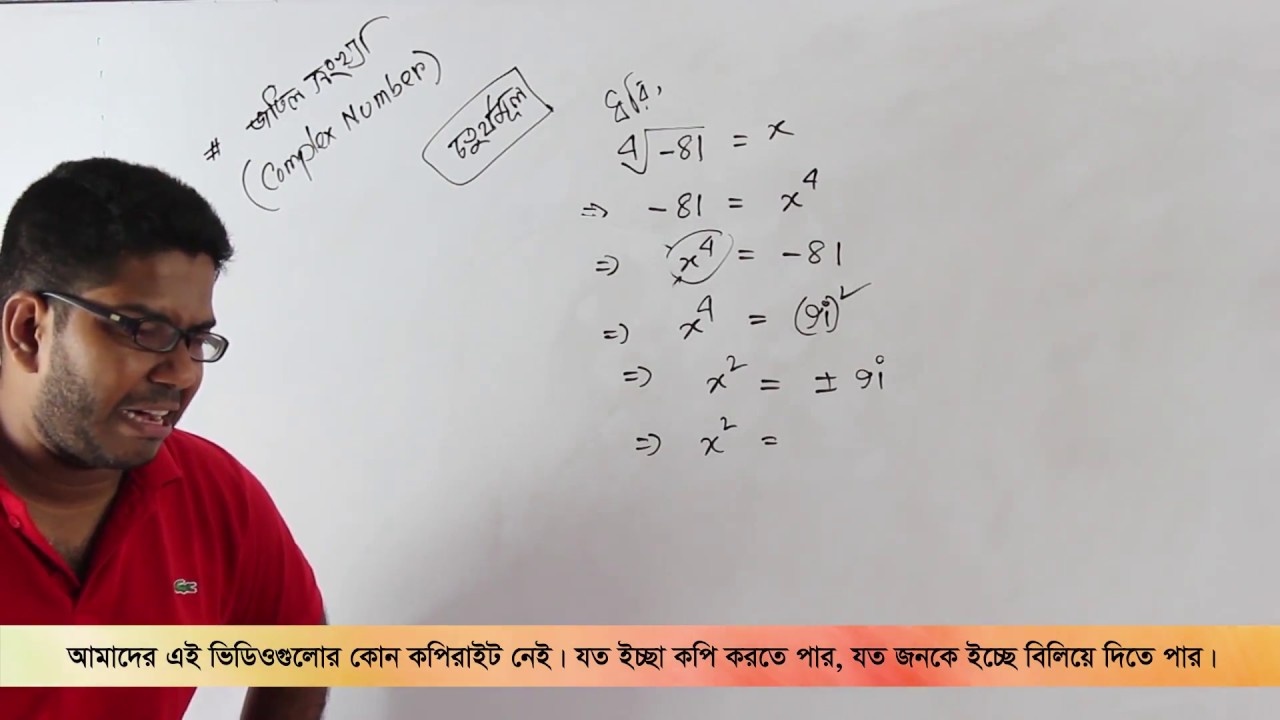 # জটিল সংখ্যা
(Complex Number)
চতুর্থমূল
ধরি,
∜-81 = x
⇒ -81 = x⁴
⇒ x⁴ = -81
⇒ x⁴ = (9i)²
⇒ x² = ± 9i
⇒ x² =
আমাদের এই ভিডিওগুলোর কোন কপিরাইট নেই। যত ইচ্ছা কপি করতে পার, যত জনকে ইচ্ছে বিলিয়ে দিতে পার।